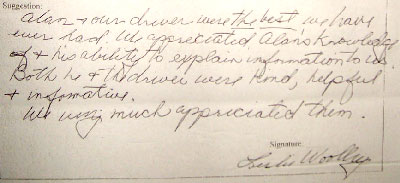 Suggestion:
Alan & our driver were the best we have
ever had. We appreciated Alan's knowledge
& his ability to explain information to us.
Both he & the driver were kind, helpful
& informative.
We very much appriciated them.
Signature
Leslie Woolley